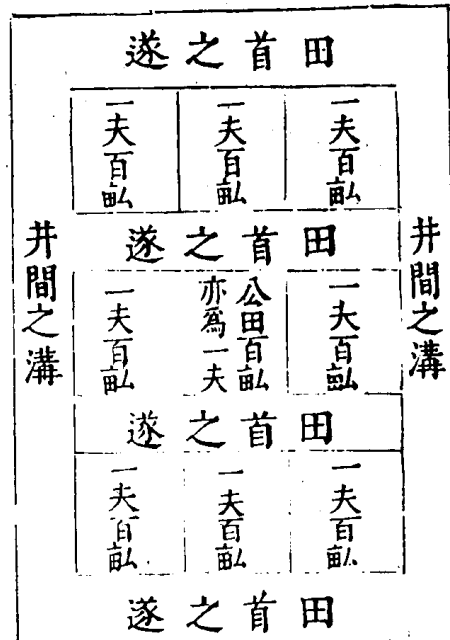 田首之遂
井間之溝
一夫百畆
一夫百畆
一夫百畆
田首之遂
一夫百畆
公田百畆
亦為一夫
一夫百畆
田首之遂
一夫百畆
一夫百畆
一夫百畆
田首之遂
井間之溝